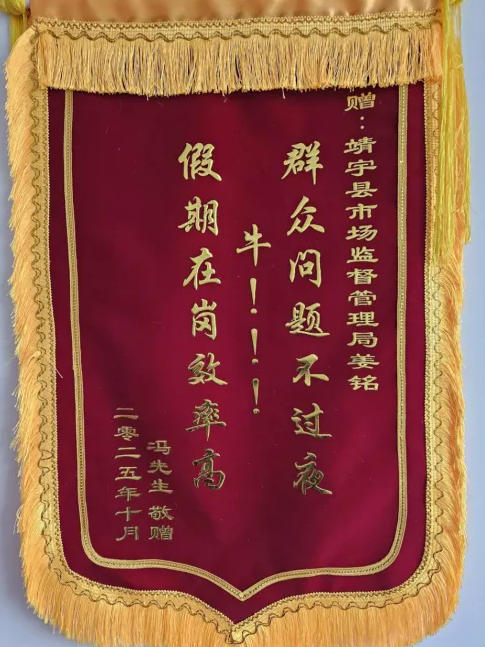 赠：靖宇县市场监督管理局姜铭
群众问题不过夜
牛！！！
假期在岗效率高
冯先生 敬赠
二零二五年十月